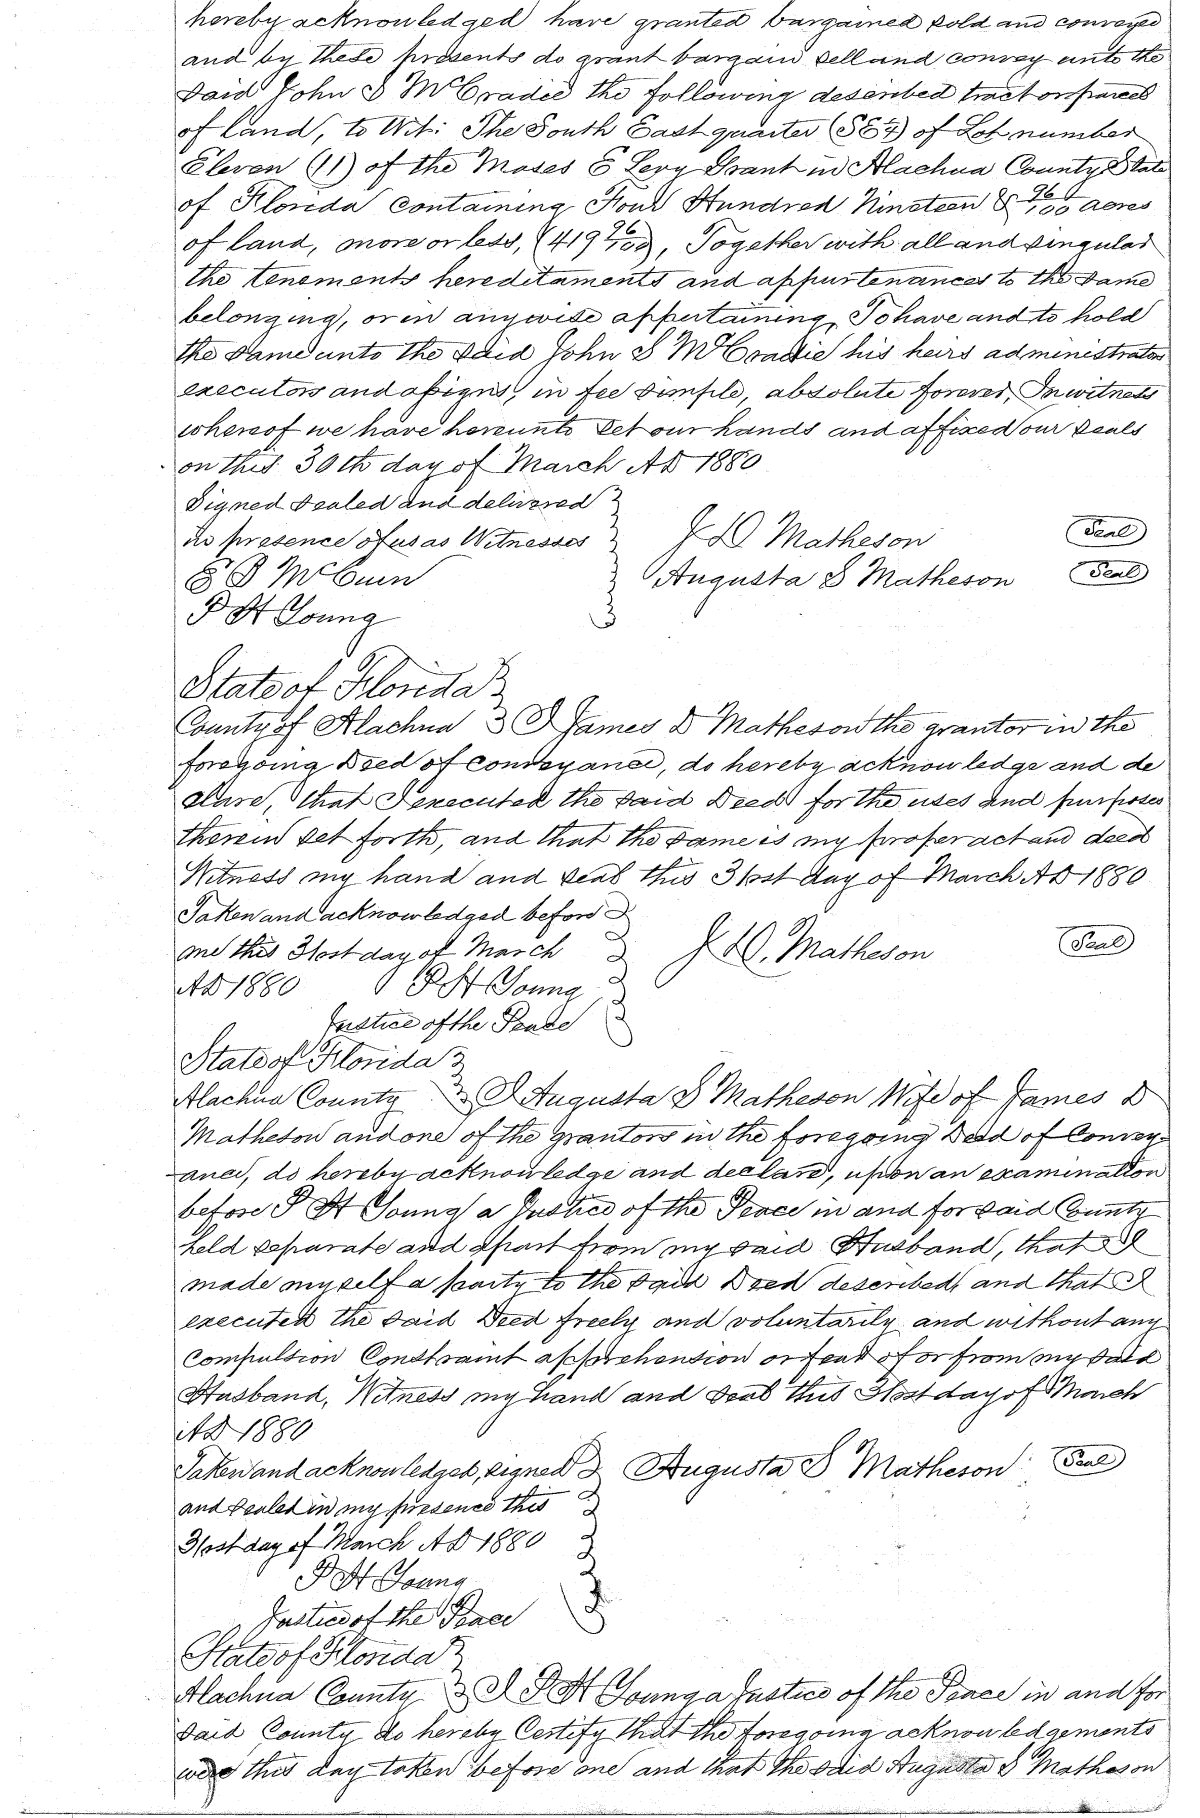 hereby acknowledged have granted bargained sold and conveyed
and by these presents do grant bargain sell and convey unto the
said John S McCradie the following described tract or parcel
of land, to Wit: The South East quarter (SE¼) of Lot number
Eleven (11) of the Moses E Levy Grant in Alachua County State
of Florida containing Four Hundred Nineteen & 96/100 acres
of land, more or less, (419 96/100), Together with all and singular
the tenements hereditaments and appurtenances to the same
belonging, or in anywise appertaining, To have and to hold
the same unto the said John S McCradie his heirs administrators
executors and assigns, in fee simple, absolute forever, In witness
whereof we have hereunto set our hands and affixed our seals
on this 30th day of March AD 1880
Signed sealed and delivered
in presence of us as Witnesses J D Matheson Seal
E B McCuen Augusta S Matheson Seal
P H Young
State of Florida
County of Alachua I James D Matheson the grantor in the
foregoing Deed of conveyance, do hereby acknowledge and de
clare, that I executed the said Deed for the uses and purposes
therein set forth, and that the same is my proper act and deed
Witness my hand and seal this 31st day of March AD 1880
Taken and acknowledged before
me this 31st day of March J D. Matheson Seal
AD 1880 P H Young
Justice of the Peace
State of Florida
Alachua County I Augusta S Matheson Wife of James D
Matheson and one of the grantors in the foregoing Deed of Convey-
ance, do hereby acknowledge and declare, upon an examination
before P H Young a Justice of the Peace in and for said County
held separate and apart from my said Husband, that I
made myself a party to the said Deed described, and that I
executed the said Deed freely and voluntarily and without any
Compulsion Constraint apprehension or fear of or from my said
Husband, Witness my hand and seal this 31st day of March
AD 1880
Taken and acknowledged, signed Augusta S Matheson Seal
and sealed in my presence this
31st day of March AD 1880
P H Young
Justice of the Peace
State of Florida
Alachua County I P H Young a Justice of the Peace in and for
said County do hereby Certify that the foregoing acknowledgements
were this day taken before me and that the said Augusta S Matheson